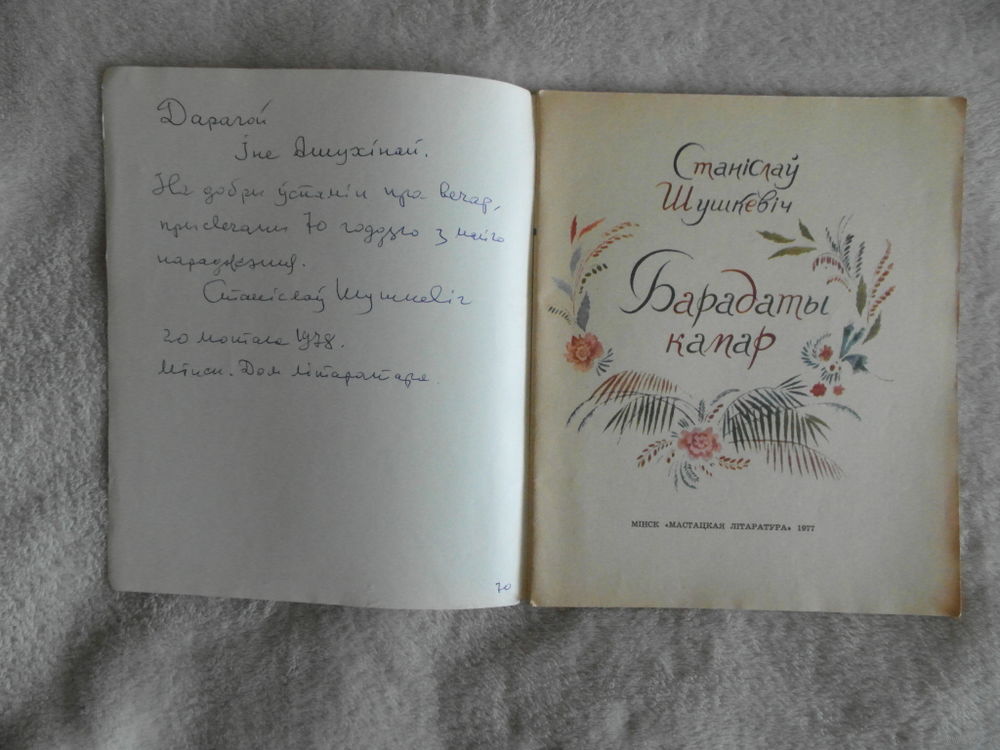 Дарагой
Іне Ашухінай.
На добры ўспамін пра вечар,
прысвечаны 70 годдзю з майго
нараджэння.
Станіслаў Шушкевіч
20 лютага 1978.
Мінск. Дом літаратара.
70
Станіслаў
Шушкевіч
Барадаты
камар
МІНСК «МАСТАЦКАЯ ЛІТАРАТУРА» 1977